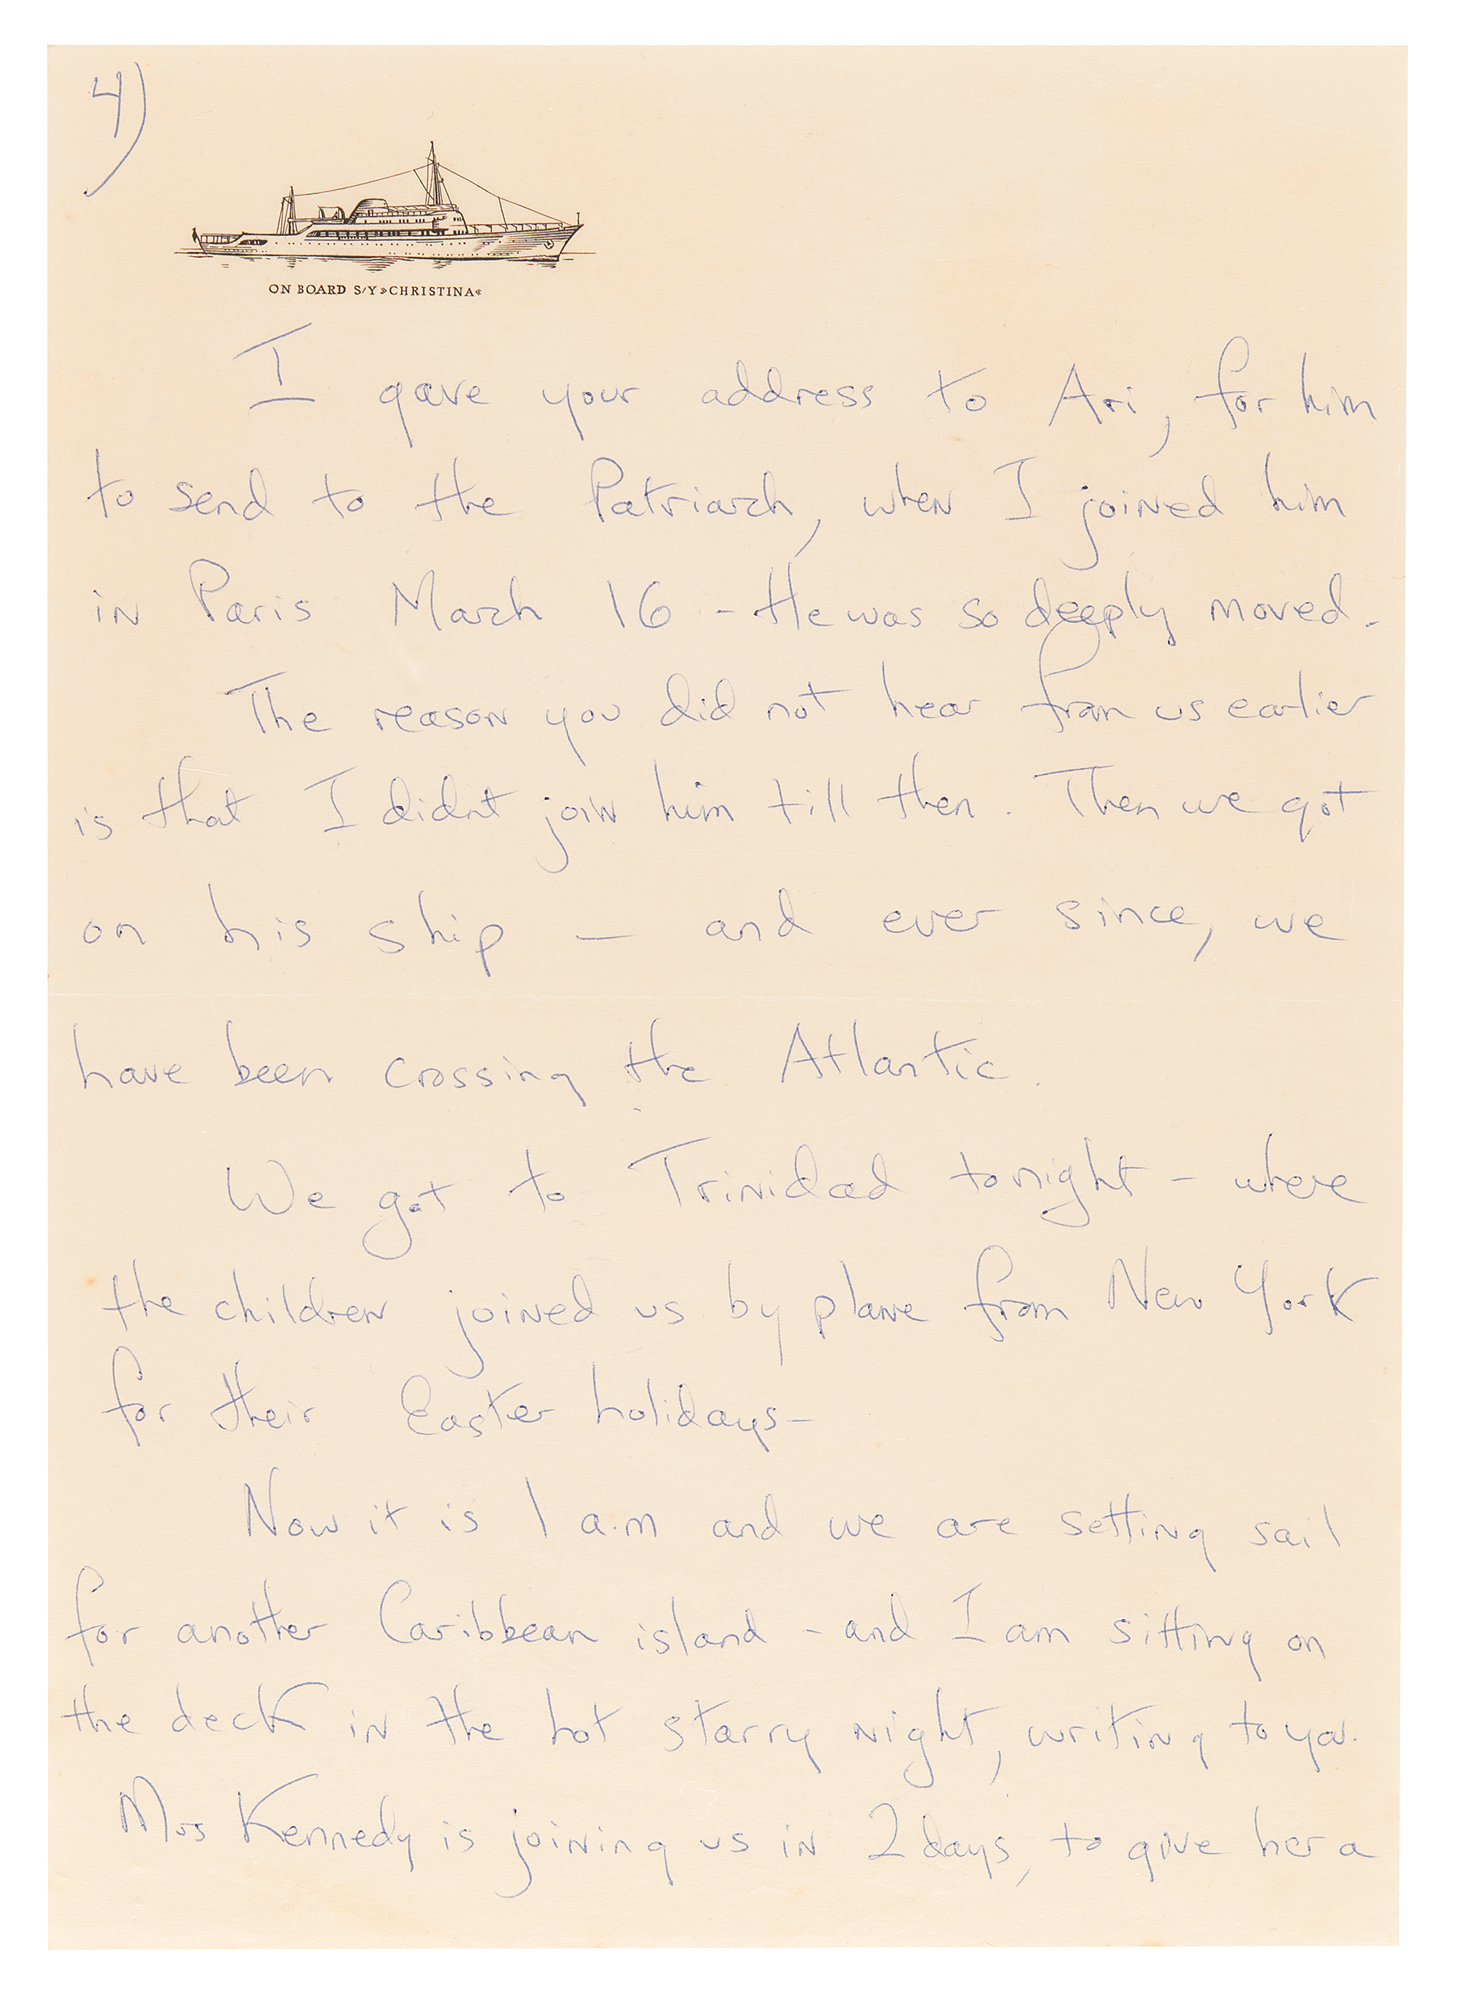 4)
ON BOARD S/Y »CHRISTINA«
I gave your address to Ari, for him
to send to the Patriarch, when I joined him
in Paris March 16 - He was so deeply moved.
The reason you did not hear from us earlier
is that I didnt join him till then. Then we got
on his ship — and ever since, we
have been crossing the Atlantic.
We got to Trinidad tonight - where
the children joined us by plane from New York
for their Easter holidays -
Now it is 1 a.m and we are setting sail
for another Caribbean island - and I am sitting on
the deck in the hot starry night, writing to you.
Mrs Kennedy is joining us in 2 days, to give her a